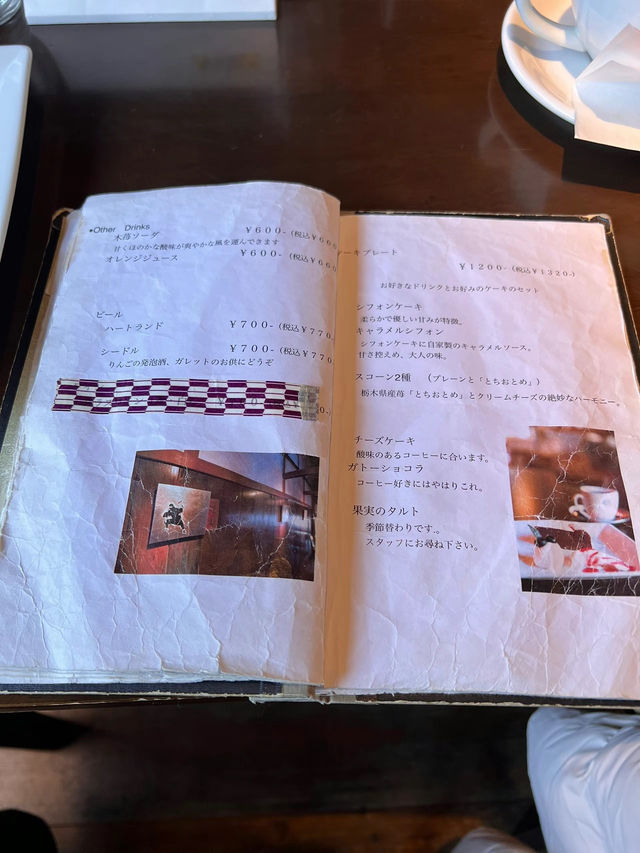 ●Other Drinks
木苺ソーダ ￥６００-（税込￥６６０
甘くほのかな酸味が爽やかな風を運んできます
オレンジジュース ￥６００-（税込￥６６０
ビール
ハートランド ￥７００-（税込￥７７０
シードル ￥７００-（税込￥７７０
りんごの発泡酒、ガレットのお供にどうぞ
0-）
ケーキプレート
￥１２００-（税込￥１３２０-）
お好きなドリンクとお好みのケーキのセット
シフォンケーキ
柔らかで優しい甘みが特徴。
キャラメルシフォン
シフォンケーキに自家製のキャラメルソース。
甘さ控えめ、大人の味。
スコーン２種 （プレーンと「とちおとめ」）
栃木県産苺「とちおとめ」とクリームチーズの絶妙なハーモニー。
チーズケーキ
酸味のあるコーヒーに合います。
ガトーショコラ
コーヒー好きにはやはりこれ。
果実のタルト
季節替わりです。。
スタッフにお尋ね下さい。